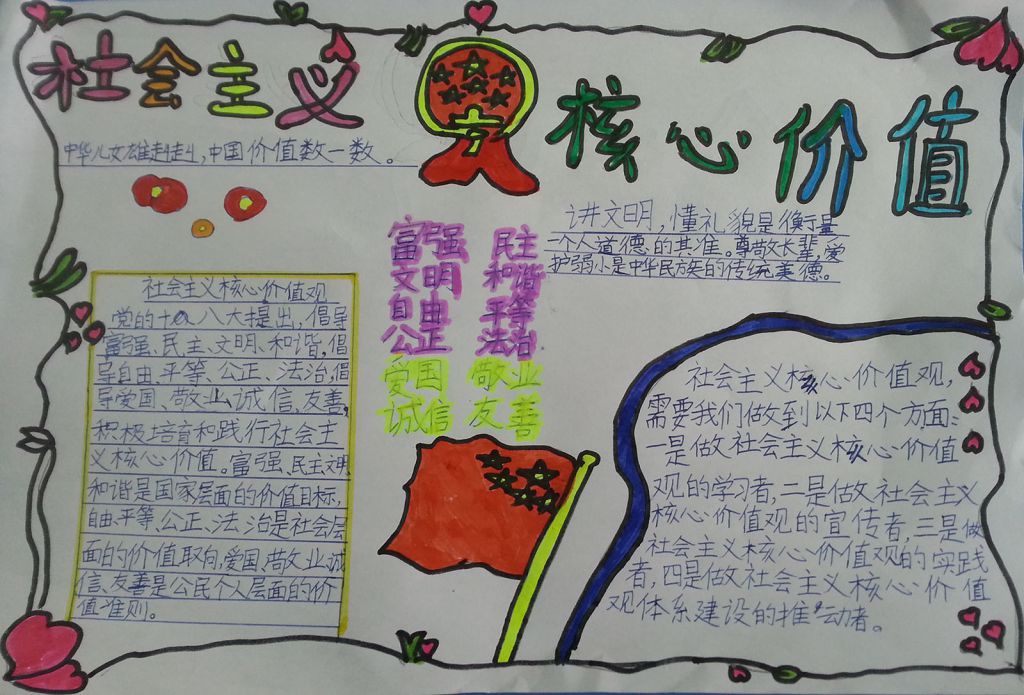 社会主义核心价值
中华儿女雄赳赳,中国价值数一数。
讲文明,懂礼貌是衡量
一个人道德的其准。尊敬长辈,爱
护弱小是中华民族的传统美德。
富强 民主
文明 和谐
自由 平等
公正 法治
爱国 敬业
诚信 友善
社会主义核心价值观
党的十八大提出,倡导
富强、民主、文明、和谐,倡
导自由、平等、公正、法治,倡
导爱国、敬业、诚信、友善,
积极培育和践行社会主
义核心价值。富强、民主文明
和谐是国家层面的价值目标,
自由、平等、公正、法治是社会层
面的价值取向,爱国、敬业、诚
信、友善是公民个人层面的价
值准则。
社会主义核心价值观,
需要我们做到以下四个方面:
一是做社会主义核心价值
观的学习者,二是做社会主义
核心价值观的宣传者,三是做
社会主义核心价值观的实践
者,四是做社会主义核心价值
观体系建设的推动者。